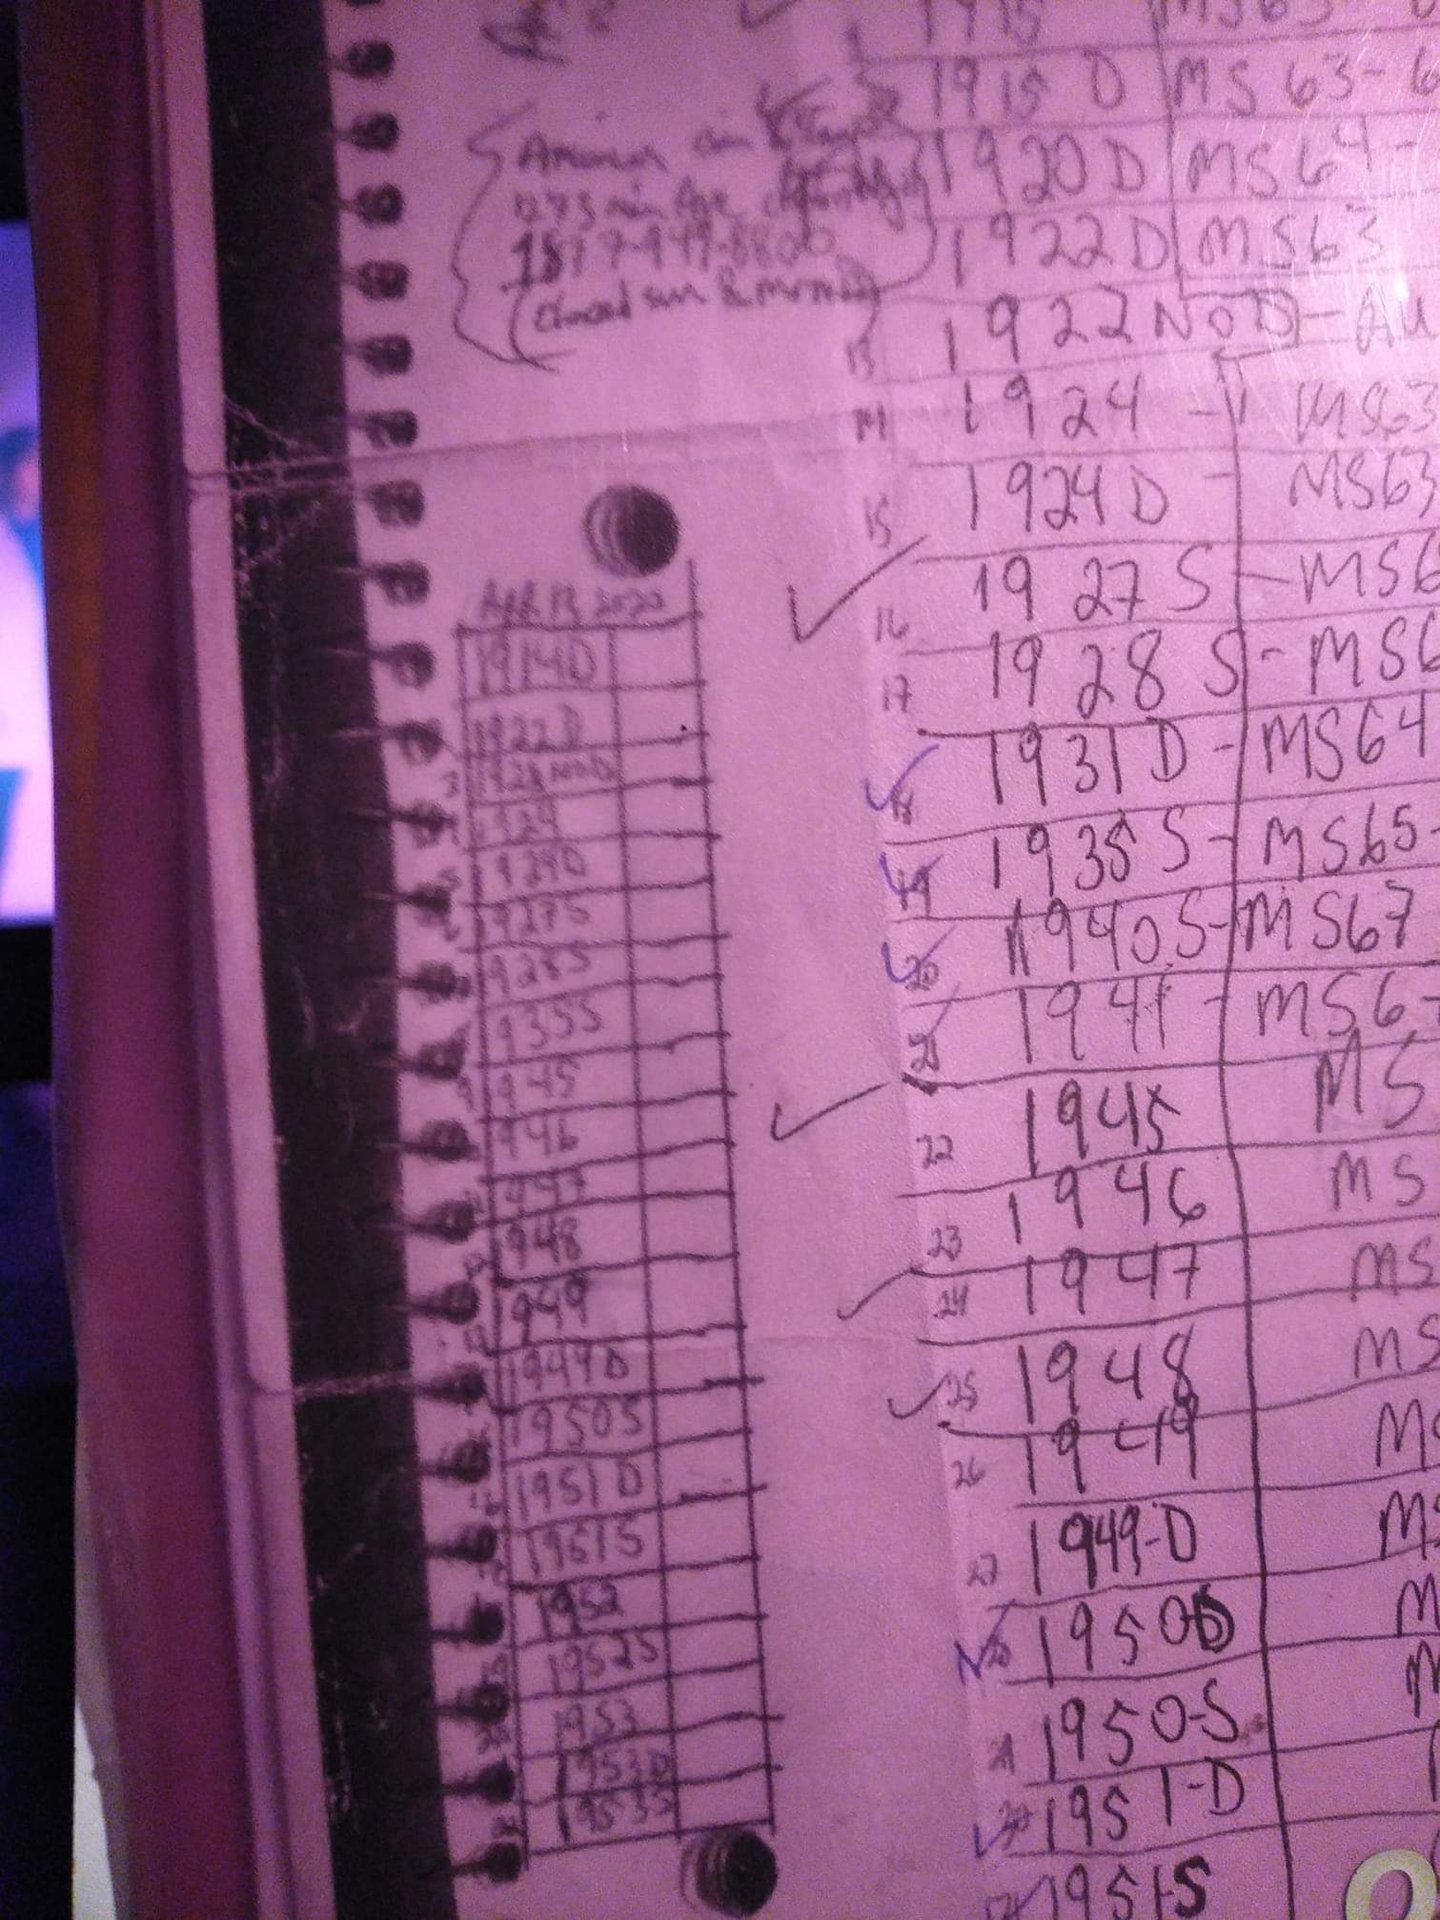 1915 MS63-
1915 D MS 63-6
1920 D MS64-
1922 D MS63
1922 No D - AU
14 1924 - MS63
15 1924 D - MS63
16 1927 S - MS6
17 1928 S - MS6
18 1931 D - MS64
19 1935 S - MS65-
20 1940 S - MS67
21 1941 - MS6
22 1945 MS
23 1946 MS
24 1947 MS
25 1948 MS
26 1949 MS
27 1949-D MS
1950-D M
1950-S M
1951-D
1951-S
closed sun & mon
2020
1914D
1922D
1924
1924D
1927S
1928S
1935S
1945
1946
1947
1948
1949
1949D
1950S
1951D
1951S
1952
1952S
1953
1953D
1953S